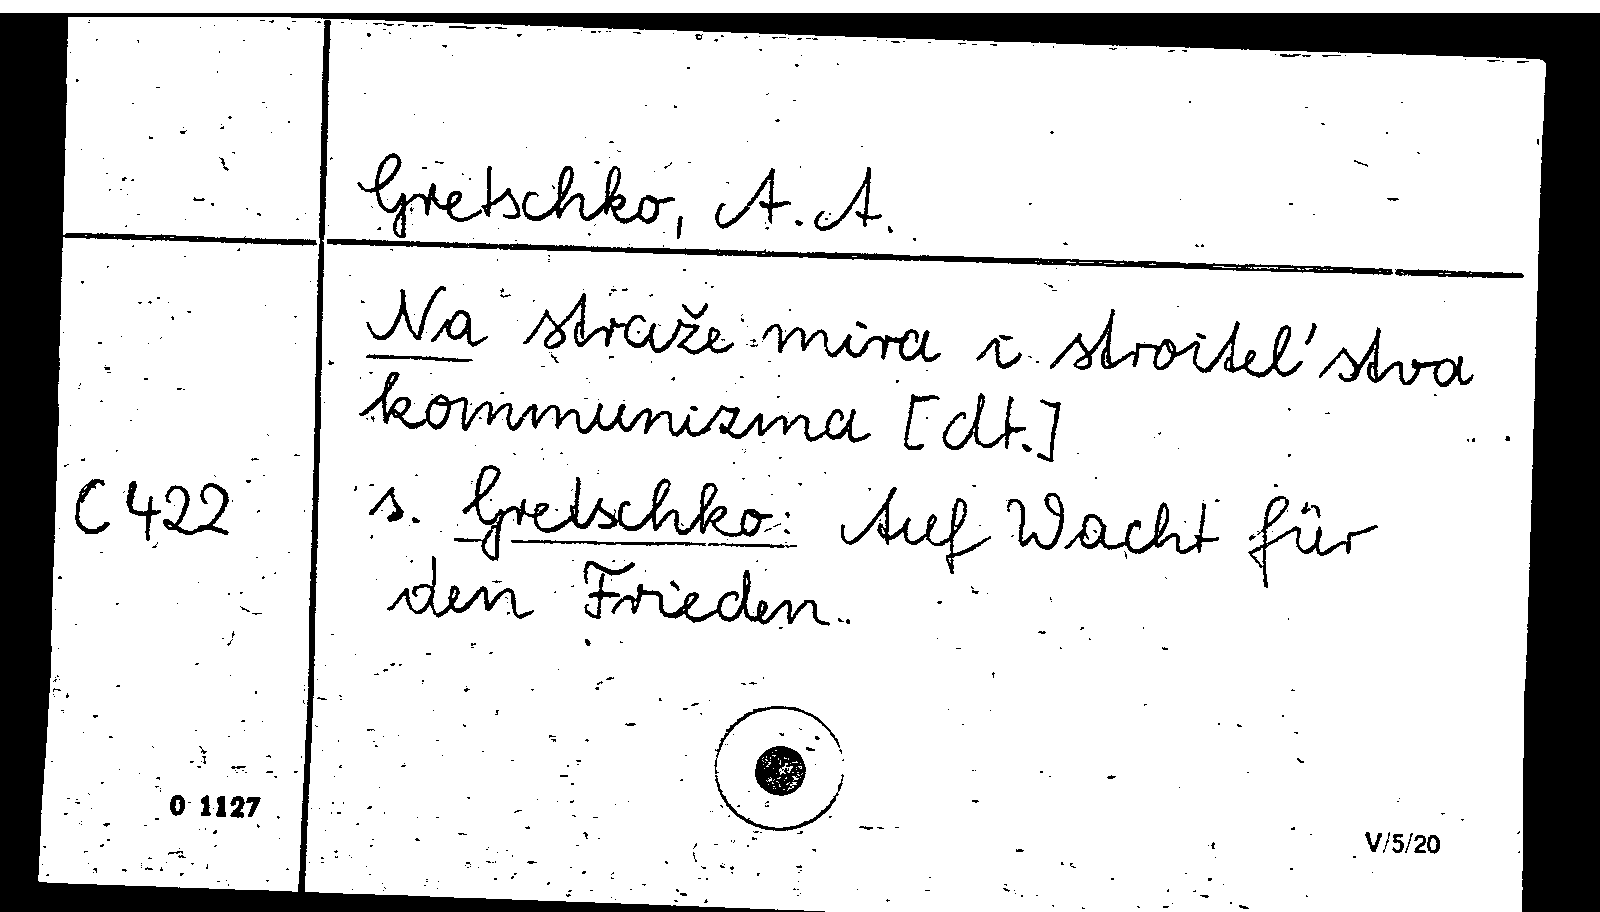 Gretschko, A. A.
Na straže mira i stroitel'stva
kommunizma [dt.]
C 422
s. Gretschko: Auf Wacht für
den Frieden.
0 1127
V/5/20